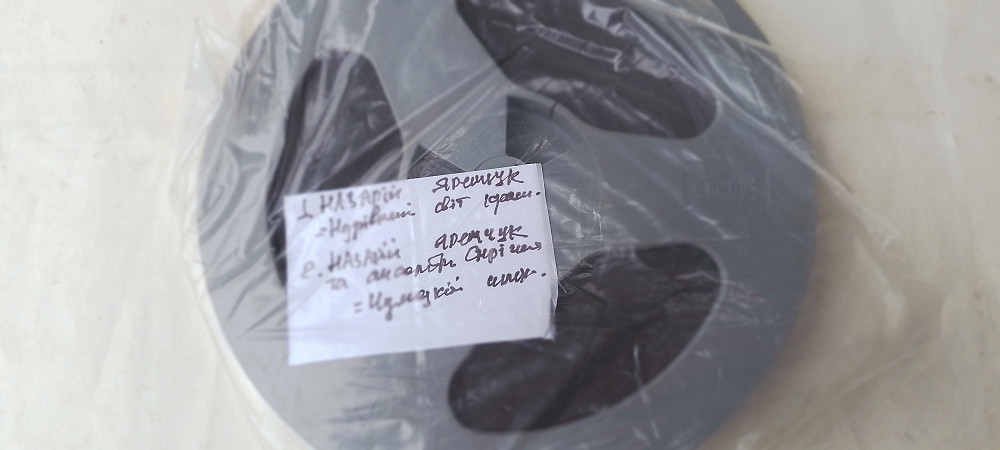 1. НАЗАРІЙ ЯРЕМЧУК
=Чарівний світ краси.
2. НАЗАРІЙ ЯРЕМЧУК
та ансамбль Смерічка
=Чумацкій шлях.